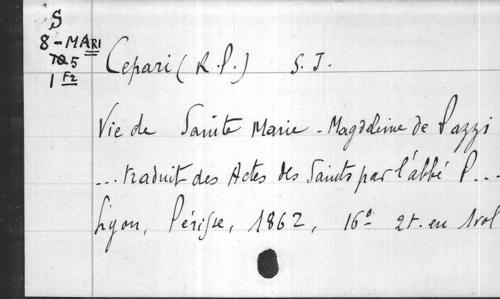 S
8-MARI
5
1 F2
Cepari (R.P.) S.J.
Vie de Sainte Marie-Magdeleine de Pazzi
...traduit des Actes des Saints par l'abbé P...
Lyon, Périsse, 1862, 16° 2t. en 1 vol